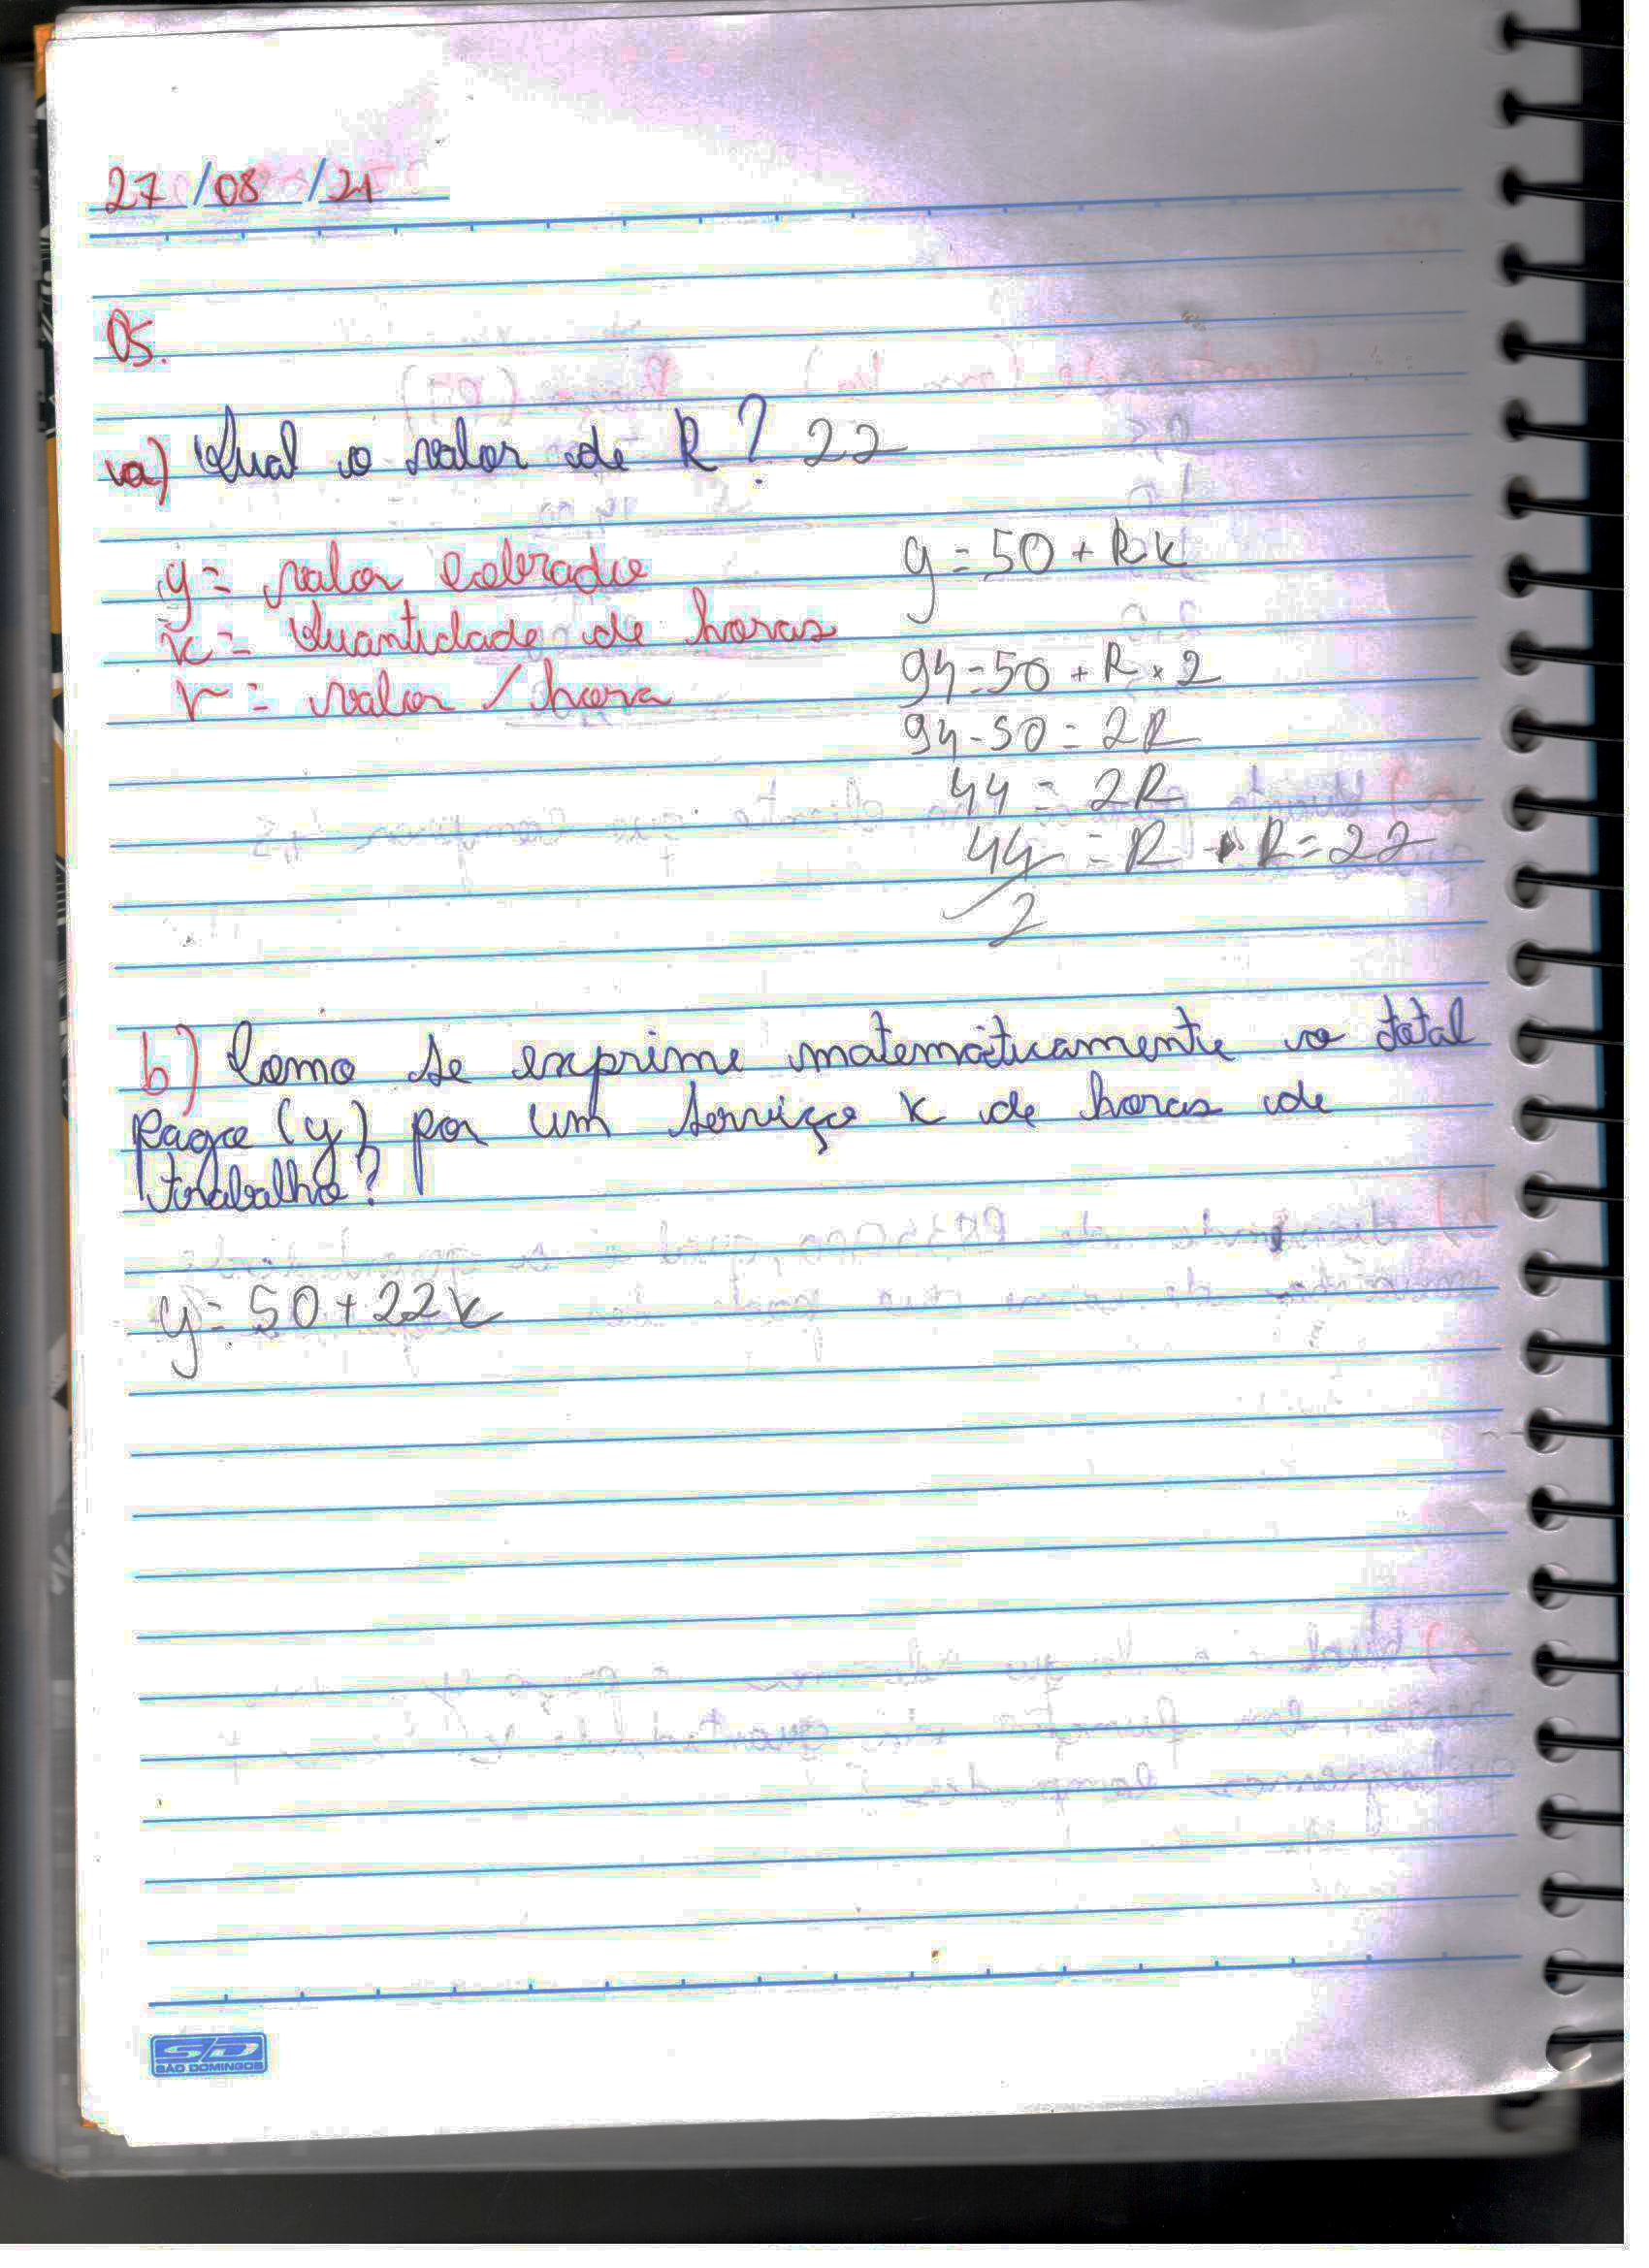 27/08/21
05.
a) Qual o valor de R? 22
y = valor cobrado
x = Quantidade de horas
r = valor / hora
y = 50 + Rx
94 = 50 + R × 2
94 - 50 = 2R
44 = 2R
44/2 = R → R = 22
b) Como se exprime matemáticamente o total
pago (y) por um serviço x de horas de
trabalho?
y = 50 + 22x
SD
SÃO DOMINGOS